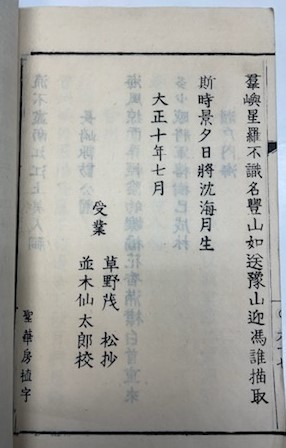 羣嶼星羅不識名豐山如送豫山迎馮誰描取
斯時景夕日將沈海月生
大正十年七月
受業
草野茂 松抄
並木仙太郎校
聖華房植字